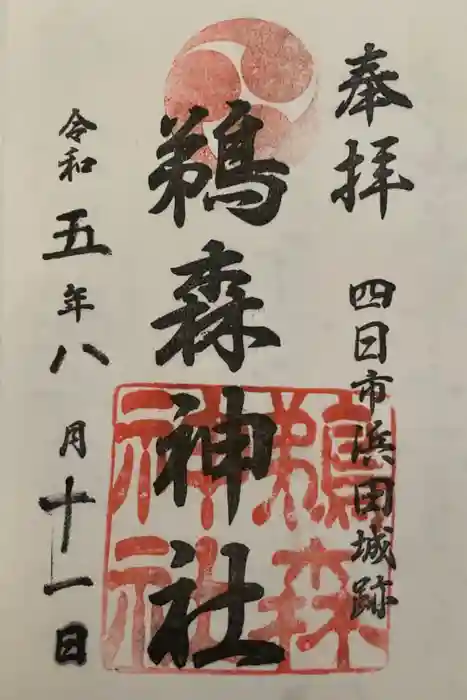 奉拝
四日市浜田城跡
鵜森神社
鵜森
神社
令和五年八月十一日